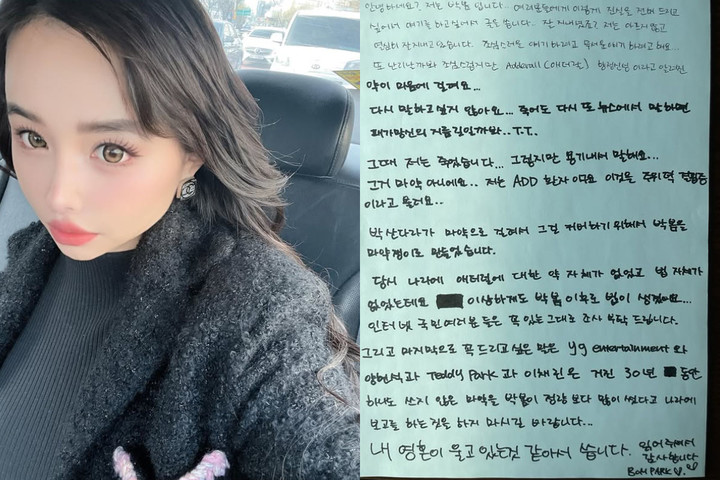 안녕하세요? 저는 박봄 입니다. 여러분들에게 이렇게 진실을 전해 드리고
싶어서 얘기를 하고싶어서 글을 씁니다. 잘 지내셨죠? 저는
열심히 잘 지내고 있습니다. 조심스러운 얘기 하려고 해요..
조심스럽지만 Adderall (애더럴)
약이 마음에 걸려요...
다시 말하고 싶지 않아요... 죽어도 다시 또 뉴스에서 말하면
패가망신의 지름길일까봐.. T.T.
그때 저는 죽었습니다... 그렇지만 용기내서 말해요...
그거 마약 아니에요.. 저는 ADD 환자 이고요 이것을 주위력 결핍증
이라고 불러요..
박산다라가 마약으로 걸려서 그걸 커버하기 위해서 박봄을
마약쟁이로 만들었습니다.
당시 나라에 애더럴에 대한 약 자체가 없었고 법 자체가
없었는데요 이상하게도 박봄 이후로 법이 생겼어요...
인터넷 국민여러분 들은 꼭 있는 그대로 조사 부탁 드립니다.
그리고 마지막으로 꼭 드리고 싶은 말은 yg entertainment 와
양현석과 Teddy Park 과 이채린 은 거진 30년 동안
하나도 쓰지 않은 마약을 박봄이 정량 보다 많이 썼다고 나라에
보고를 하는것을 하지 마시길 바랍니다...
내 영혼이 울고 있는것 같아서 씁니다. 읽어 주셔서
감사합니다
BOM PARK